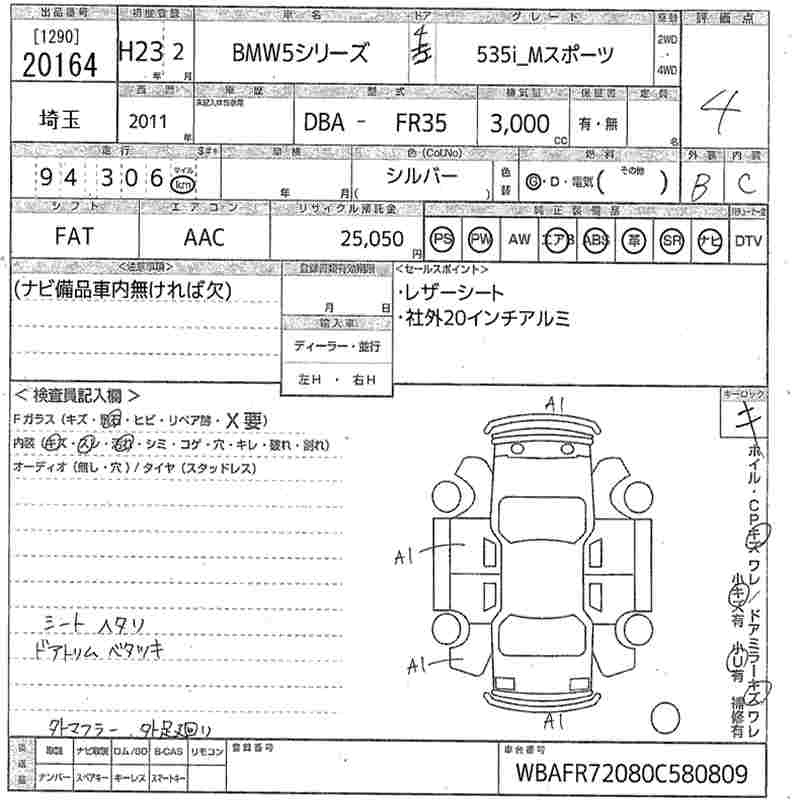 出品番号 初度登録 車名 ドア グレード 駆動 評価点
[1290]
20164 H23年 2月 BMW5シリーズ 535i_Mスポーツ 2WD・4WD 4
西暦 車歴 型式 排気量 保証書 定員
未記入は自家用
埼玉 2011年 DBA - FR35 3,000cc 有・無 名
走行 車検 色(Col.No) 燃料 外装 内装
94,306 マイル km 年 月 シルバー ( ) 色替 G・D・電気( その他 ) B C
シフト エアコン リサイクル預託金 純正装備品
FAT AAC 25,050円 PS PW AW エアB ABS 革 SR ナビ DTV
<注意事項> 登録書類有効期限 <セールスポイント>
(ナビ備品車内無ければ欠) 月 日 ・レザーシート
輸入車 ・社外20インチアルミ
ディーラー・並行
左H ・ 右H
<検査員記入欄> キーロック
キ
Fガラス(キズ・飛石・ヒビ・リペア跡・X要)
内装(キズ・スレ・汚れ・シミ・コゲ・穴・キレ・破れ・割れ)
オーディオ(無し・穴)/タイヤ(スタッドレス)
A1
A1
A1
A1
ホイル・CPキズ ワレ/ドアミラーキズ ワレ
小キズ有 小U有 補修有
シート ヘタリ
ドアトリム ベタツキ
外マフラー、外足廻り
後送品 取説 ナビ取説 ロム/SD B-CAS リモコン 登録番号 車台番号
ナンバー スペアキー キーレス スマートキー
WBAFR72080C580809